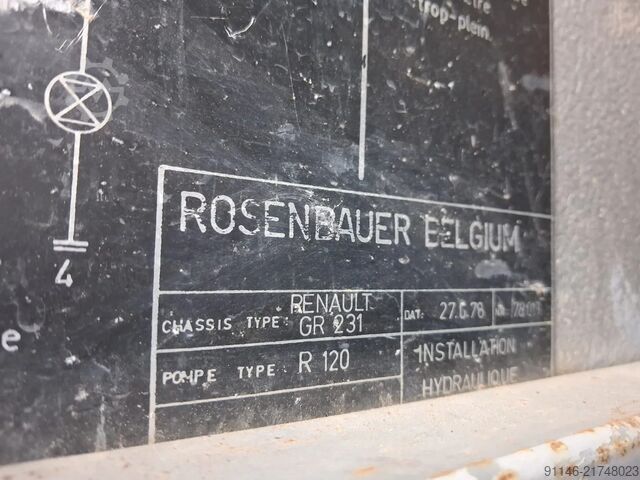 trop-plein.
4
e
ROSENBAUER BELGIUM
CHASSIS TYPE: RENAULT GR 231
DAT: 27.6.78
POMPE TYPE: R 120
INSTALLATION
HYDRAULIQUE
91146-21748023